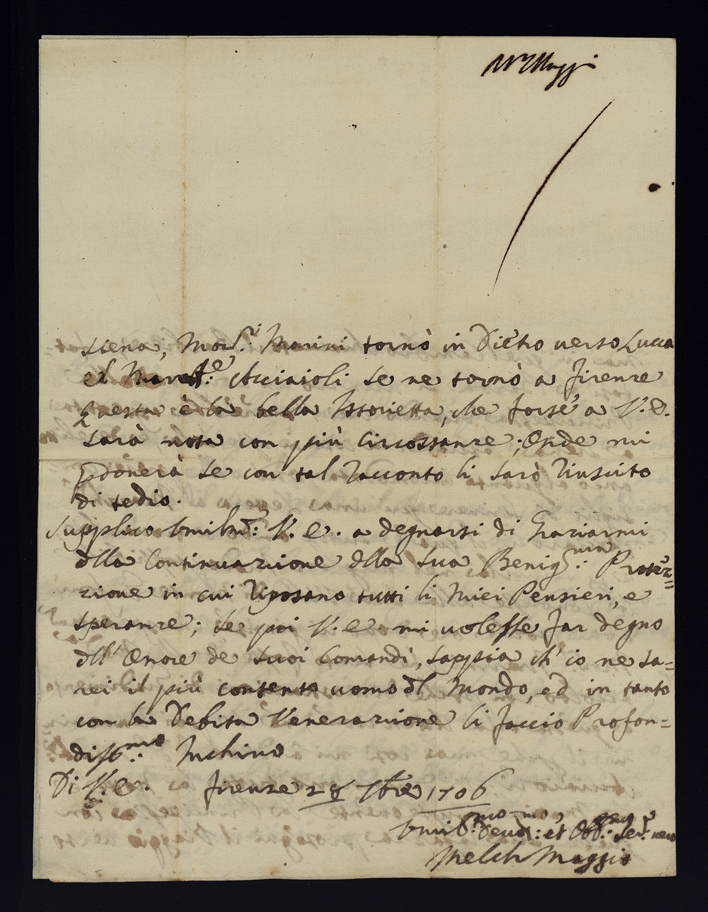 Maggi
Siena, Mon.r Marini tornò in Dietro verso Lucca
ed il March.e Acciaioli se ne tornò a firenze
questa è la bella Istorietta, che forse a V. E.
sarà nota con più Circostanze; Onde mi
pdonerà se con tal racconto li sarò riuscito
di tedio.
Supplico Umilm.e V. E. a degnarsi di Graziarmi
dlla Continuazione dlla sua Benig.ma Protez=
zione in cui riposano tutti li Miei Pensieri, e
speranze; se poi V. E. mi volesse far degno
dll' Onore de suoi Comandi, sappia ch' io ne sa=
rei il più contento uomo dl Mondo, ed in tanto
con la Debita Venerazione li faccio Profon=
diss.mo Inchino
Di V. E. firenze 28 7bre 1706
Umil.mo Devo.mo et Obb. Ser.re vero
Melch Maggio